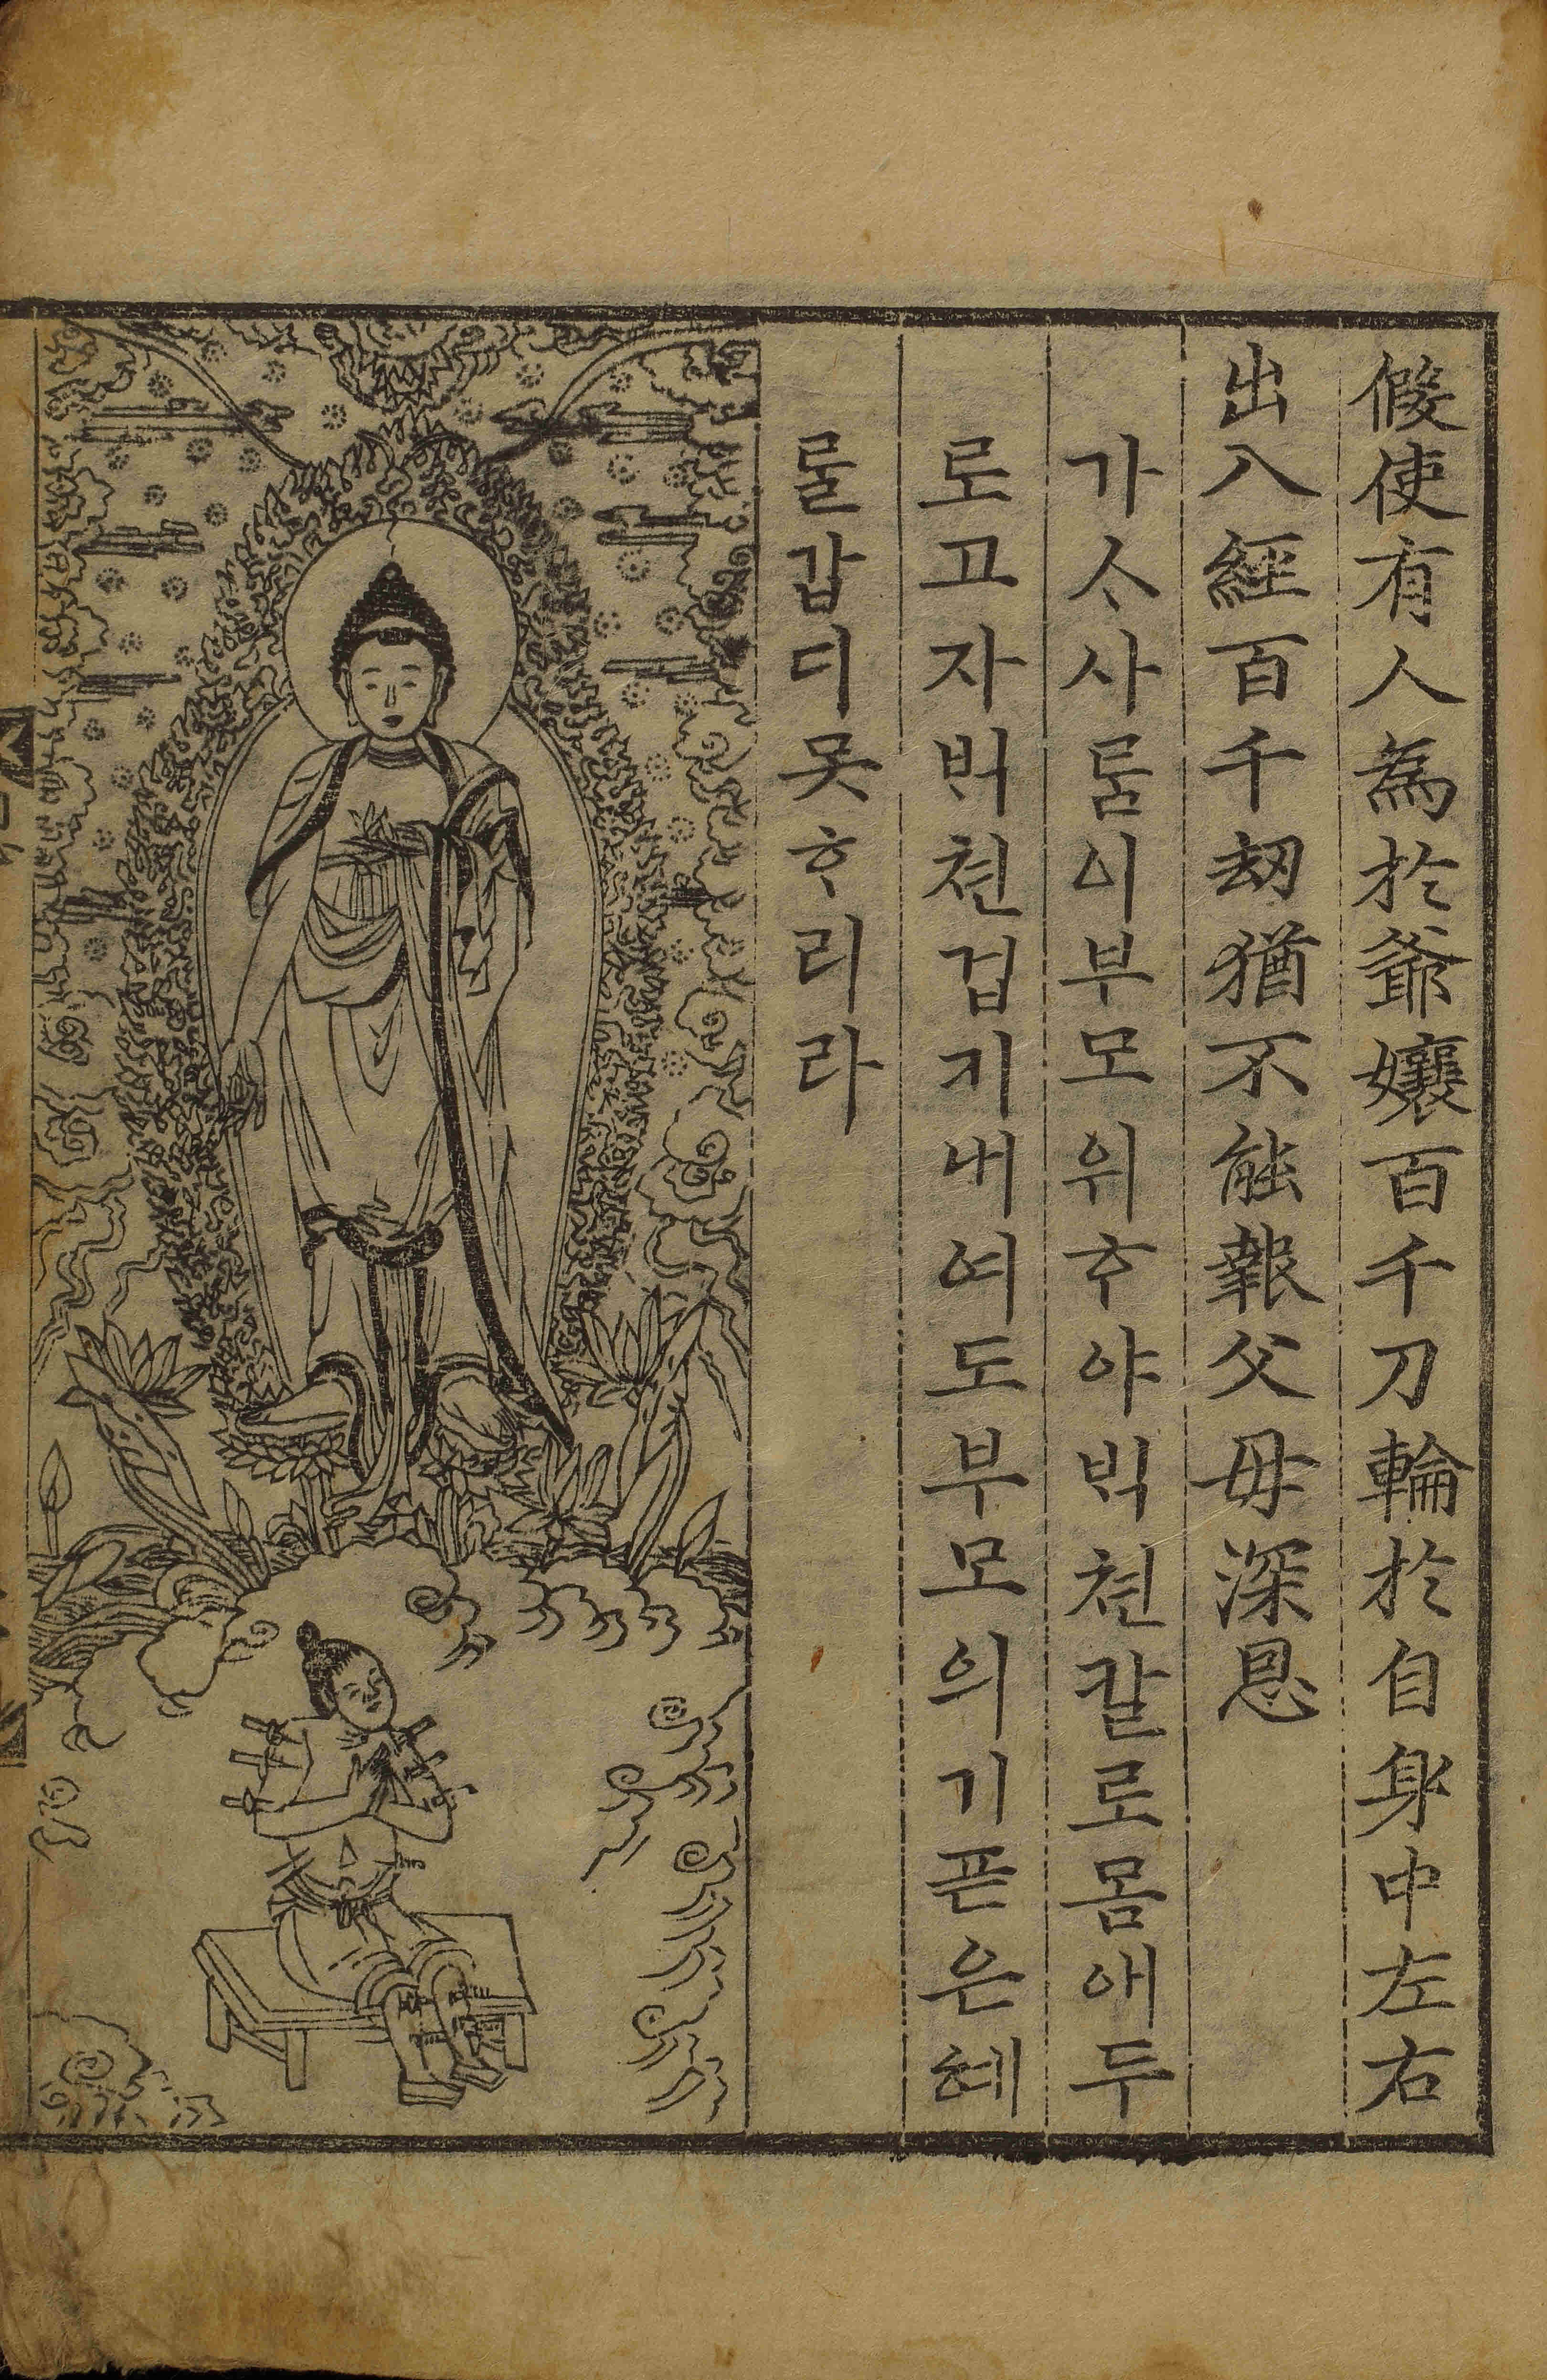 假使有人為於爺孃百千刀輪於自身中左右
出入經百千刼猶不能報父母深恩
가ᄉᆞ사ᄅᆞᆷ이부모위ᄒᆞ야ᄇᆡᆨ쳔칼로몸애두
로고자ᄇᆡ쳔겁기내여도부모의기픈은혜
ᄅᆞᆯ갑디못ᄒᆞ리라